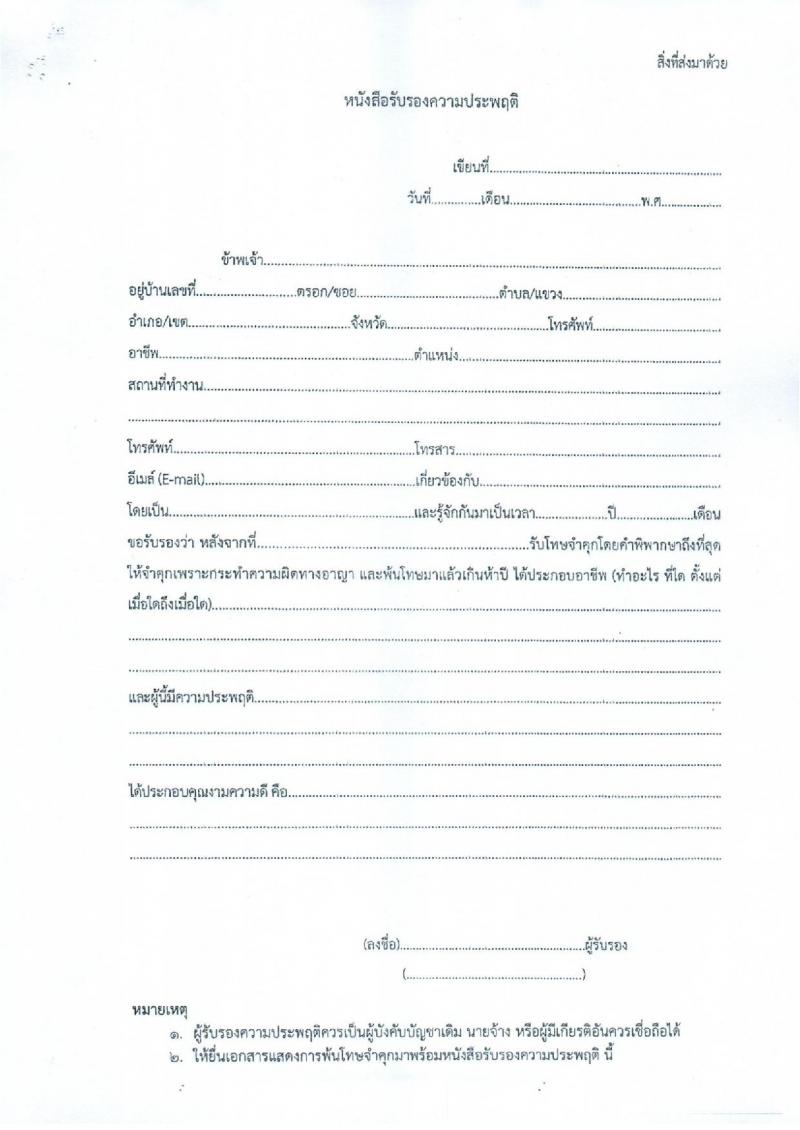 สิ่งที่ส่งมาด้วย
หนังสือรับรองความประพฤติ
เขียนที่..........................................................
วันที่.............เดือน..................................พ.ศ................
ข้าพเจ้า..............................................................................................................
อยู่บ้านเลขที่..........................ตรอก/ซอย....................................ตำบล/แขวง........................................
อำเภอ/เขต..........................................จังหวัด..........................................โทรศัพท์................................
อาชีพ.................................................................ตำแหน่ง..................................................................
สถานที่ทำงาน....................................................................................................................................
......................................................................................................................................................
โทรศัพท์..............................................................โทรสาร...................................................................
อีเมล์ (E-mail)......................................................เกี่ยวข้องกับ.............................................................
โดยเป็น...............................................................และรู้จักกันมาเป็นเวลา...................ปี....................เดือน
ขอรับรองว่า หลังจากที่.....................................................................รับโทษจำคุกโดยคำพิพากษาถึงที่สุด
ให้จำคุกเพราะกระทำความผิดทางอาญา และพ้นโทษมาแล้วเกินห้าปี ได้ประกอบอาชีพ (ทำอะไร ที่ใด ตั้งแต่
เมื่อใดถึงเมื่อใด)..................................................................................................................................
......................................................................................................................................................
......................................................................................................................................................
และผู้นี้มีความประพฤติ.......................................................................................................................
......................................................................................................................................................
......................................................................................................................................................
ได้ประกอบคุณงามความดี คือ..............................................................................................................
......................................................................................................................................................
......................................................................................................................................................
(ลงชื่อ)...............................................ผู้รับรอง
(.............................................)
หมายเหตุ
๑. ผู้รับรองความประพฤติควรเป็นผู้บังคับบัญชาเดิม นายจ้าง หรือผู้มีเกียรติอันควรเชื่อถือได้
๒. ให้ยื่นเอกสารแสดงการพ้นโทษจำคุกมาพร้อมหนังสือรับรองความประพฤติ นี้